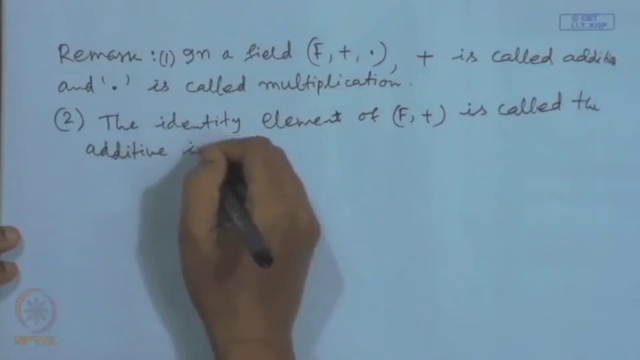 © CET
I.I.T. KGP
Remark : (1) In a field (F, +, ·), + is called additio
and '·' is called multiplication.
(2) The identity element of (F, +) is called the
additive i
NPTEL